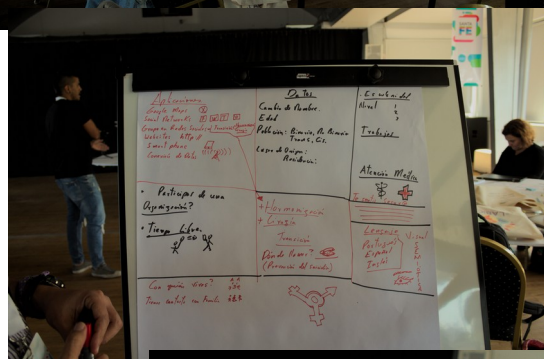 Aplicaciones
Google Maps
Social Networks
Grupos en Redes Sociales
Websites http://
Smart phone
Conexión de Datos
Datos
Cambio de Nombre.
Edad
Población: Binario, No Binario
Trans, Cis.
Lugar de Origen:
Residencia:
Nivel 1
2
3
Trabajas
Atención Medica
• Participas de una
Organización?
• Tiempo Libre.
+ Hormonización
+ Cirugía
Transición
Dónde llamar?
Lenguaje
Portugués
Español
Inglés
Visual
Con quién vives?
Tienes contacto con Familia
FE